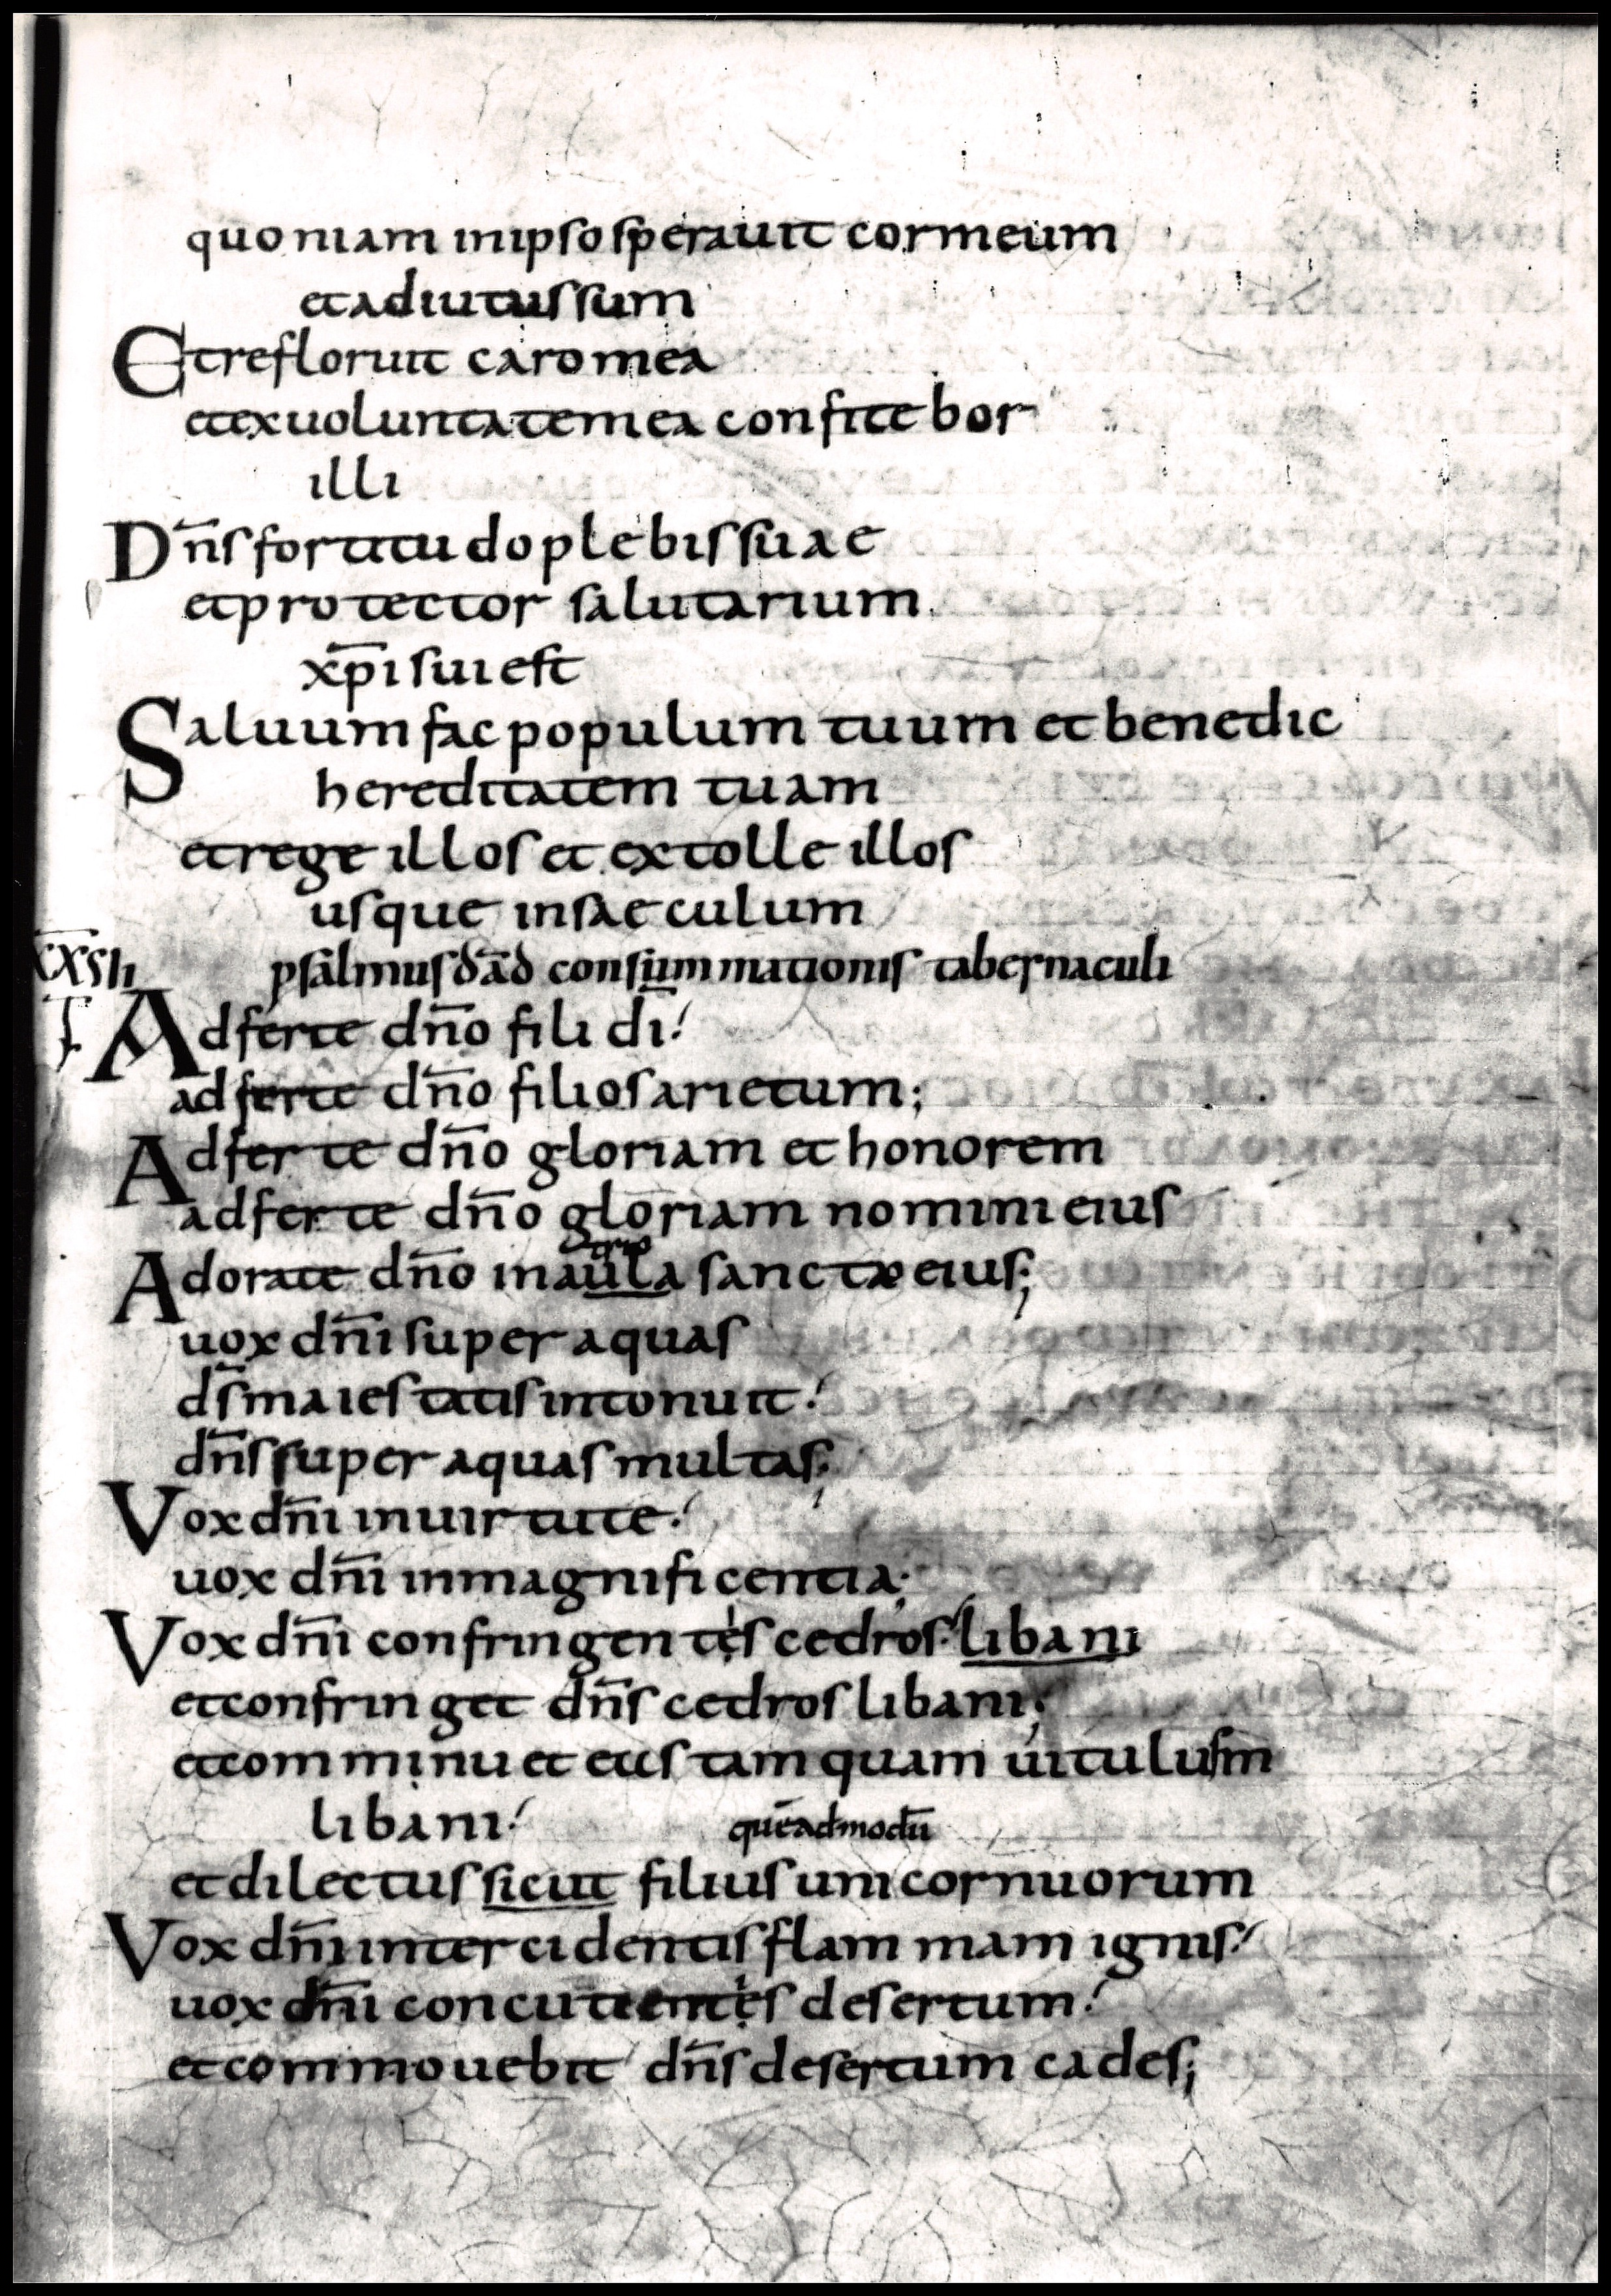 quoniam in ipso sperauit cor meum
et adiutus sum
Et refloruit caro mea
et ex uoluntate mea confitebor
illi
Dn̄s fortitudo plebis suae
et protector salutarium
xp̄i sui est
Saluum fac populum tuum et benedic
hereditatem tuam
et rege illos et extolle illos
usque in saeculum
psalmus dād consummationis tabernaculi
Adferte dn̄o fili dī
adferte dn̄o filios arietum;
Adferte dn̄o gloriam et honorem
adferte dn̄o gloriam nomini eius
Adorate dn̄o in aula sancta eius;
uox dn̄i super aquas
ds̄ maiestatis intonuit
dn̄s super aquas multas;
Vox dn̄i in uirtute
uox dn̄i in magnificentia;
Vox dn̄i confringentes cedros libani
et confringet dn̄s cedros libani;
et comminuet eas tamquam uitulum
libani
quēadmodū
et dilectus sicut filius unicornuorum
Vox dn̄i intercidentis flammam ignis
uox dn̄i concutientes desertum
et commouebit dn̄s desertum cades;